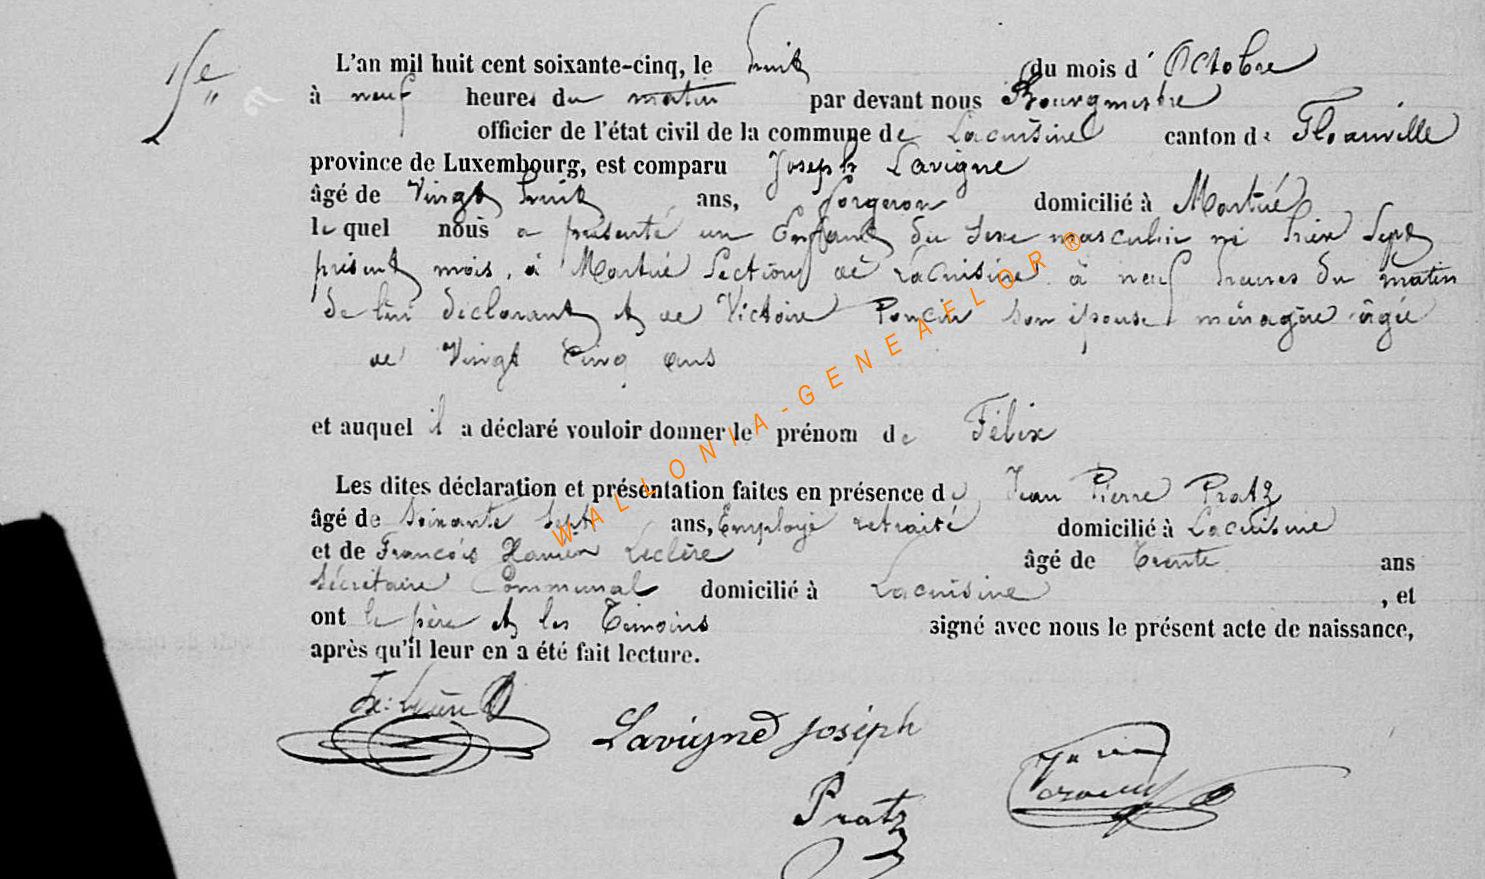 L'an mil huit cent soixante-cinq, le huit du mois d'Octobre
à neuf heures du matin par devant nous Bourgmestre
officier de l'état civil de la commune de Lacuisine canton de Florenville
province de Luxembourg, est comparu Joseph Lavigne
âgé de Vingt huit ans, forgeron domicilié à Martué
lequel nous a présenté un Enfant du sexe masculin né hier Sept
présent mois, à Martué Section de Lacuisine à neuf heures du matin
de lui déclarant et de Victoire Poncin son épouse, ménagère âgée
de Vingt Cinq ans
et auquel il a déclaré vouloir donner le prénom de Félix
Les dites déclaration et présentation faites en présence de Jean Pierre Pratz
âgé de Soixante Sept ans, Employé retraité domicilié à Lacuisine
et de François Xavier Leclère âgé de Trente ans
Secrétaire Communal domicilié à Lacuisine, et
ont le père et les Témoins signé avec nous le présent acte de naissance,
après qu'il leur en a été fait lecture.
Lavigne Joseph
Pratz
WALLONIA-GENEAELOR ®